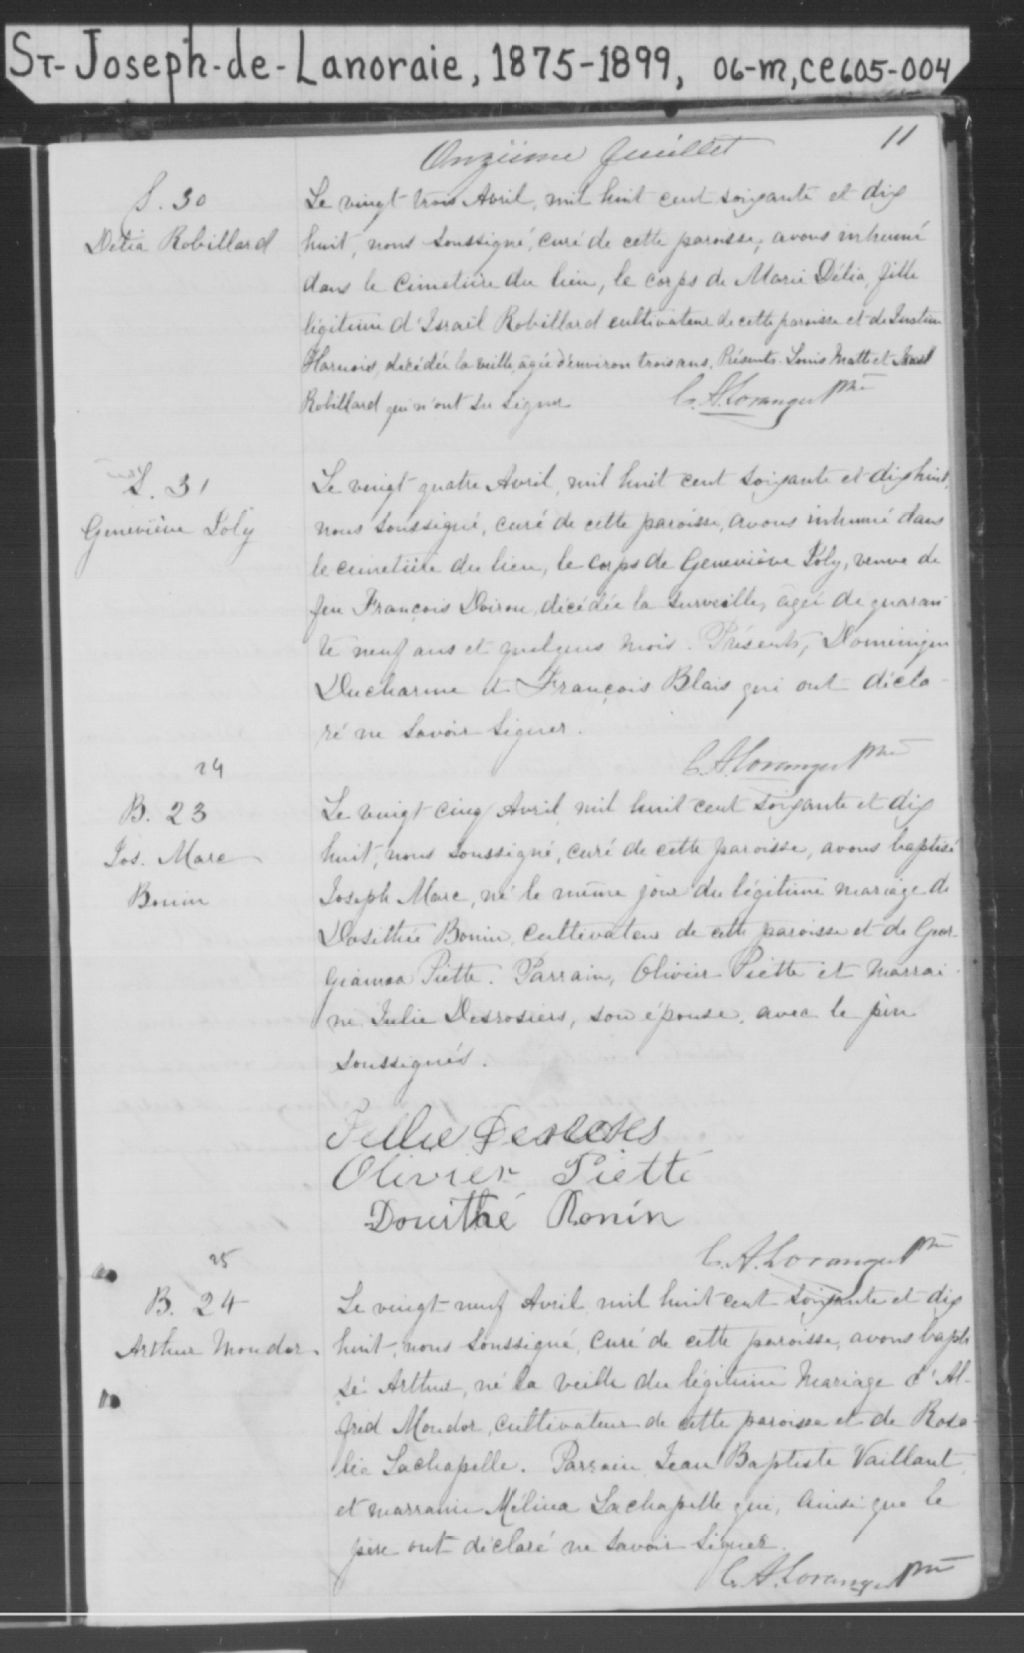 ST-Joseph-de-Lanoraie, 1875-1899, 06-M, CE605-004
Onzième feuillet
11
S. 30
Delia Robillard
Le vingt trois Avril, mil huit cent soixante et dix
huit, nous soussigné, curé de cette paroisse, avons inhumé
dans le cimetière du lieu, le corps de Marie Délia, fille
légitime d'Israël Robillard cultivateur de cette paroisse et de Justine
Harnois, décédée la veille, agée d'environ trois ans. Présents Louis Matte et Israël
Robillard qui n'ont su signer
C. A. Loranger Ptre
S. 31
Geneviève Joly
Le vingt quatre Avril, mil huit cent soixante et dix huit,
nous soussigné, curé de cette paroisse, avons inhumé dans
le cimetière du lieu, le corps de Geneviève Joly, veuve de
feu François Doiron, décédée la surveille, agée de quaran
te neuf ans et quelques mois. Présents, Dominique
Ducharme et François Blais qui ont décla-
ré ne savoir signer.
C. A. Loranger Ptre
24
B. 23
Jos. Marc
Bonin
Le vingt cinq Avril mil huit cent soixante et dix
huit, nous soussigné, curé de cette paroisse, avons baptisé
Joseph Marc, né le même jour du légitime mariage de
Dosithée Bonin, cultivateur de cette paroisse et de Geor-
gianna Piette. Parrain, Olivier Piette et marrai-
ne Julie Desrosiers, son épouse, avec le père
soussignés.
Julie
Olivier Piette
Bonin
C. A. Loranger Ptre
25
B. 24
Arthur Mondor
Le vingt-neuf Avril mil huit cent soixante et dix
huit, nous soussigné, curé de cette paroisse, avons bapti
sé Arthur, né la veille du légitime mariage d'Al-
fred Mondor, cultivateur de cette paroisse et de Rosa-
lie Lachapelle. Parrain Jean Baptiste Vaillant
et marraine Mélina Lachapelle qui, ainsi que le
père ont déclaré ne savoir signer.
C. A. Loranger Ptre